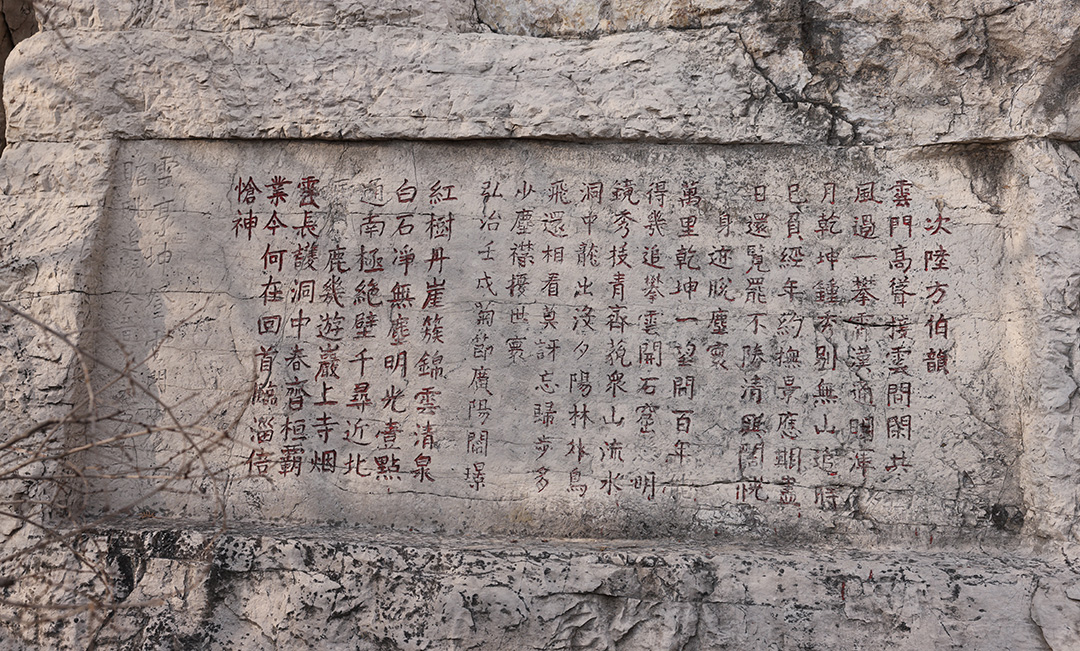 次陸方伯韻
雲門高聳接雲間閑共
風過一攀霄漢通明
月乾坤鍾秀別無山追時
已負經年約撫景應
日還覽罷不勝清眺
身迹脫塵寰
萬里乾坤一望間百年
得幾追攀雲開石窟 明
鏡秀挍青齊藐衆山流水
洞中龍出沒夕陽林外鳥
飛還相看莫訝忘歸步多
少塵襟擾世寰
弘治壬戌菊節廣陽閻璟
紅樹丹崖簇錦雲清泉
白石淨無塵明光壹點
南極絶壁千尋近北
鹿幾遊巖上寺烟
雲長護洞中春齊桓霸
業今何在回首臨淄倍
愴神